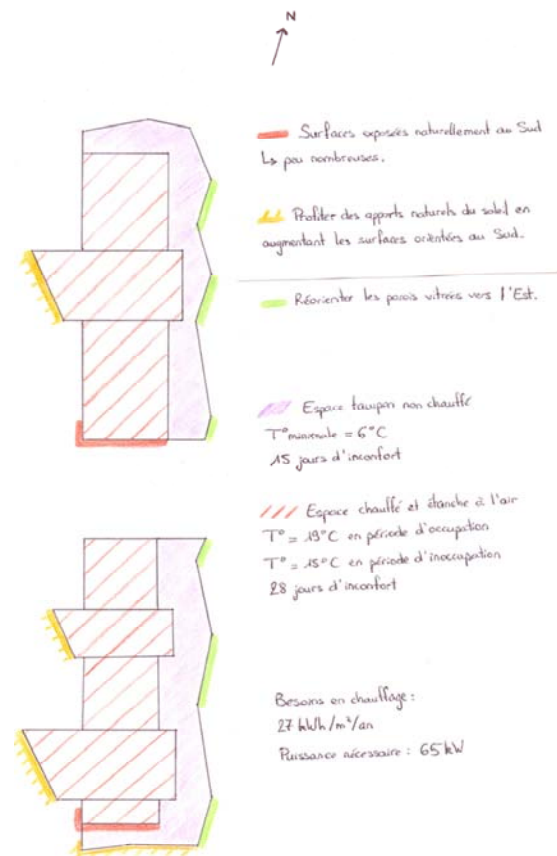 N
Surfaces exposées naturellement au Sud
↳ peu nombreuses.
Profiter des apports naturels du soleil en
augmentant les surfaces orientées au Sud.
Réorienter les parois vitrées vers l'Est.
Espace tampon non chauffé
T° minimale = 6°C
15 jours d'inconfort
Espace chauffé et étanche à l'air
T° = 19°C en période d'occupation
T° = 15°C en période d'inoccupation
28 jours d'inconfort
Besoins en chauffage :
27 kWh/m²/an
Puissance nécessaire : 65 kW